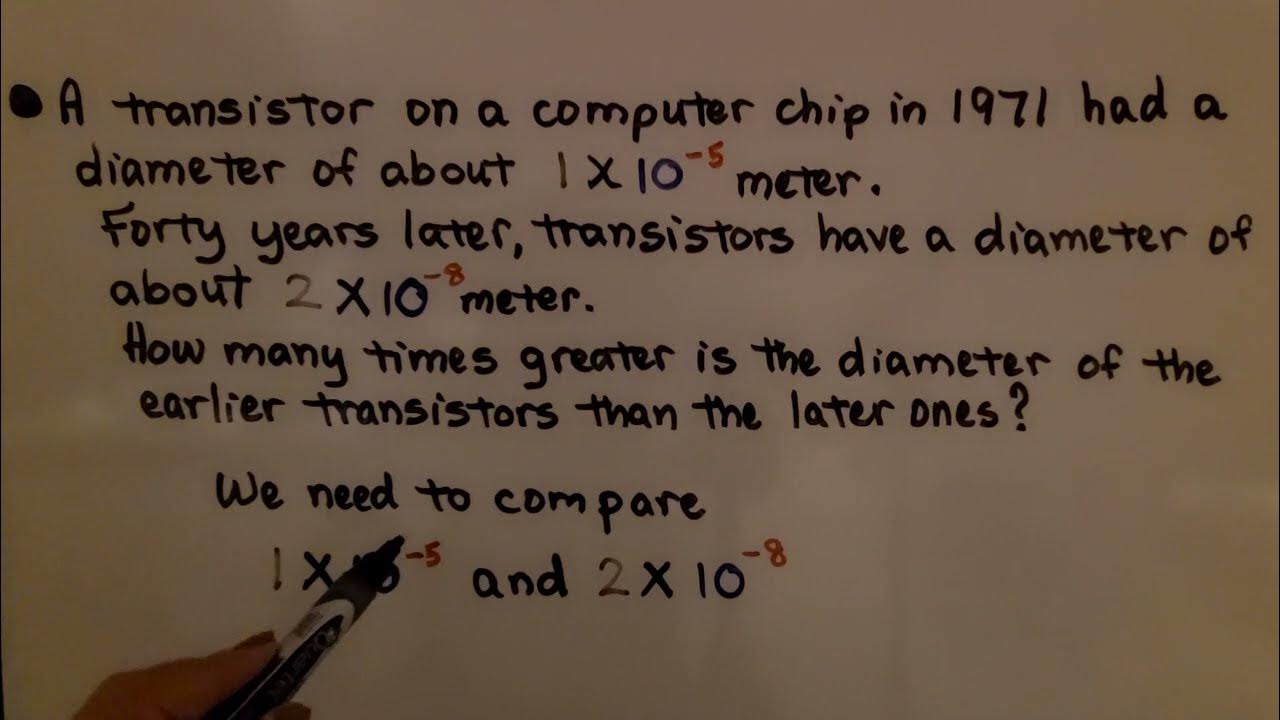 • A transistor on a computer chip in 1971 had a
diameter of about 1 X 10⁻⁵ meter.
Forty years later, transistors have a diameter of
about 2 X 10⁻⁸ meter.
How many times greater is the diameter of the
earlier transistors than the later ones?
We need to compare
1 X 10⁻⁵ and 2 X 10⁻⁸